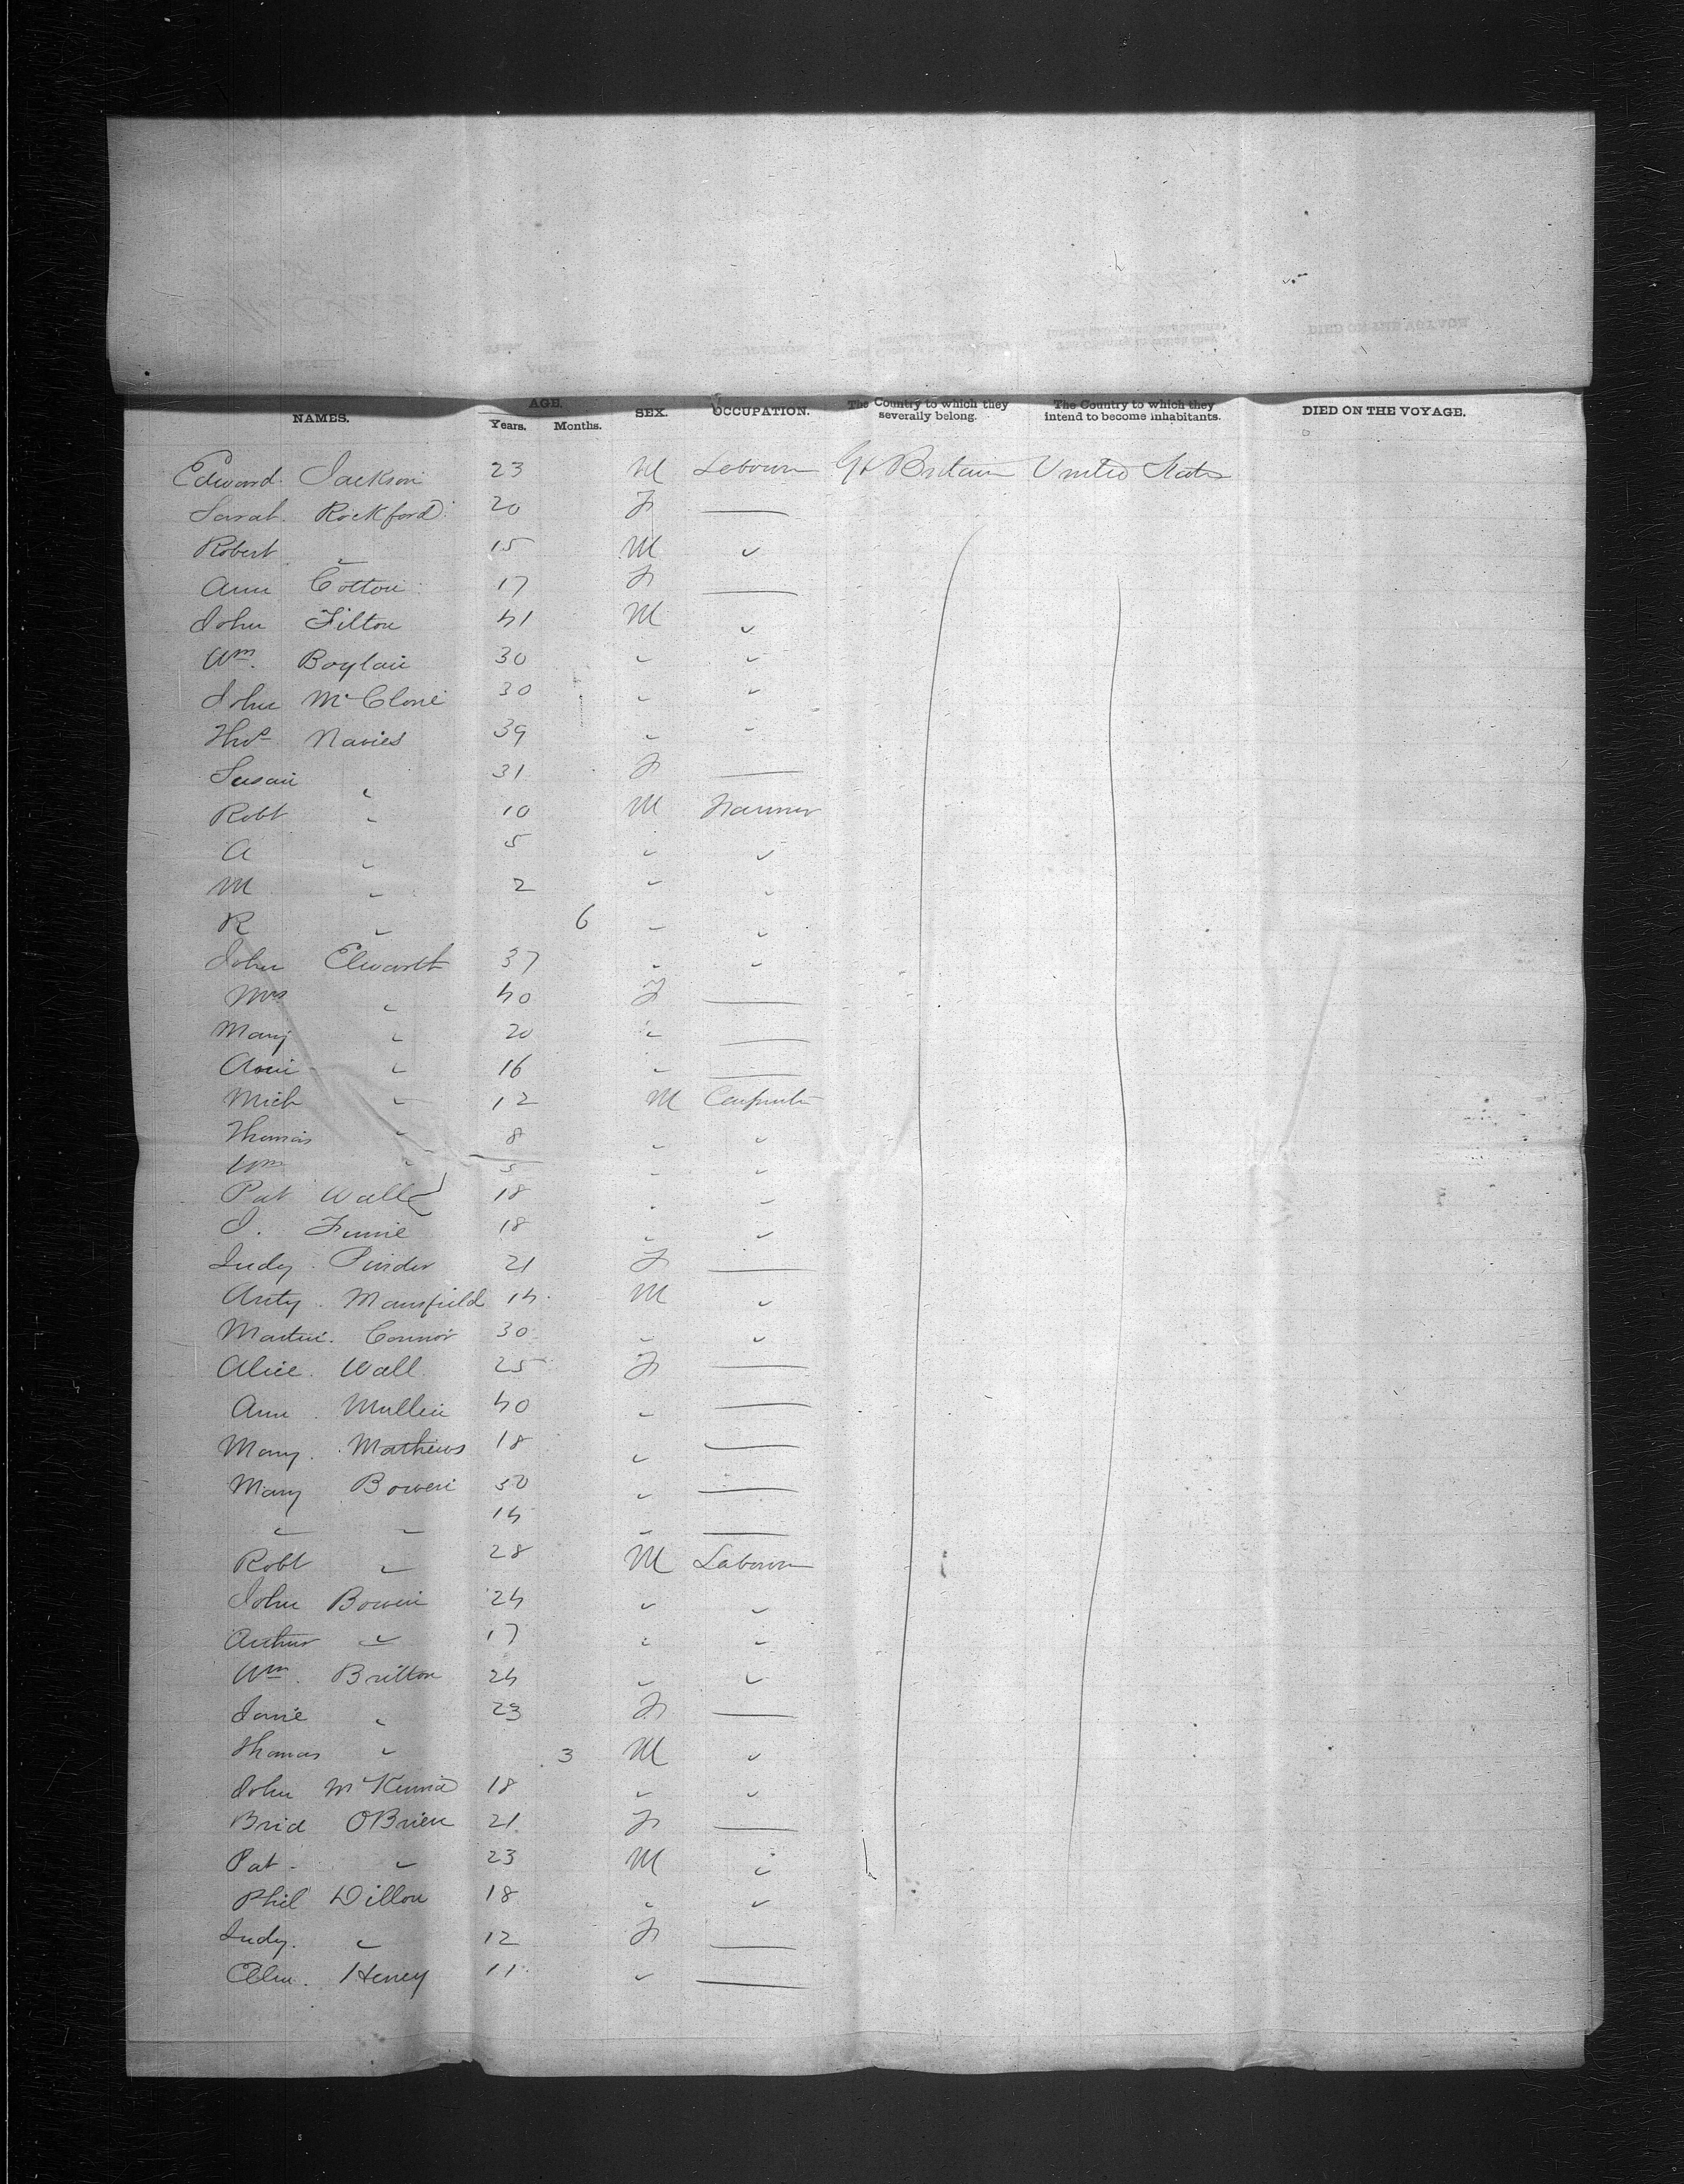 NAMES. AGE. Years. Months. SEX. OCCUPATION. The Country to which they severally belong. The Country to which they intend to become inhabitants. DIED ON THE VOYAGE.
Edward Jackson 23 M Labourer Gt Britain United States
Sarah Rockford 20 F —
Robert " 15 M "
Ann Cotton 17 F —
John Tilton 41 M "
Wm. Boylan 30 " "
John McClone 30 " "
Thos Navies 39 " "
Susan " 31 F —
Robt " 10 M Farmer
A " 5 " "
M " 2 " "
R " 6 " "
John Elwarth 37 " "
Mrs " 40 F —
Mary " 20 " —
Ann " 16 " —
Mich " 12 M Carpenter
Thomas " 8 " "
Wm " 5 " "
Pat Wall 18 " "
J. 18 " "
Judy Pinder 21 F —
Anty. Mansfield 14 M "
Martin. Connor 30 " "
Alice. Wall 25 F —
Ann. Mullin 40 " —
Mary. Mathews 18 " —
Mary Bowen 50 " —
" " 14 " —
Robt " 28 M Labourer
John Bowen 24 " "
Arthur " 17 " "
Wm. Britton 24 " "
Jane " 23 F —
Thomas " 3 M "
John McKenna 18 " "
Brid OBrien 21 F —
Pat " 23 M "
Phil Dillon 18 " "
Judy. " 12 F —
Ellen. Henry 11 " —